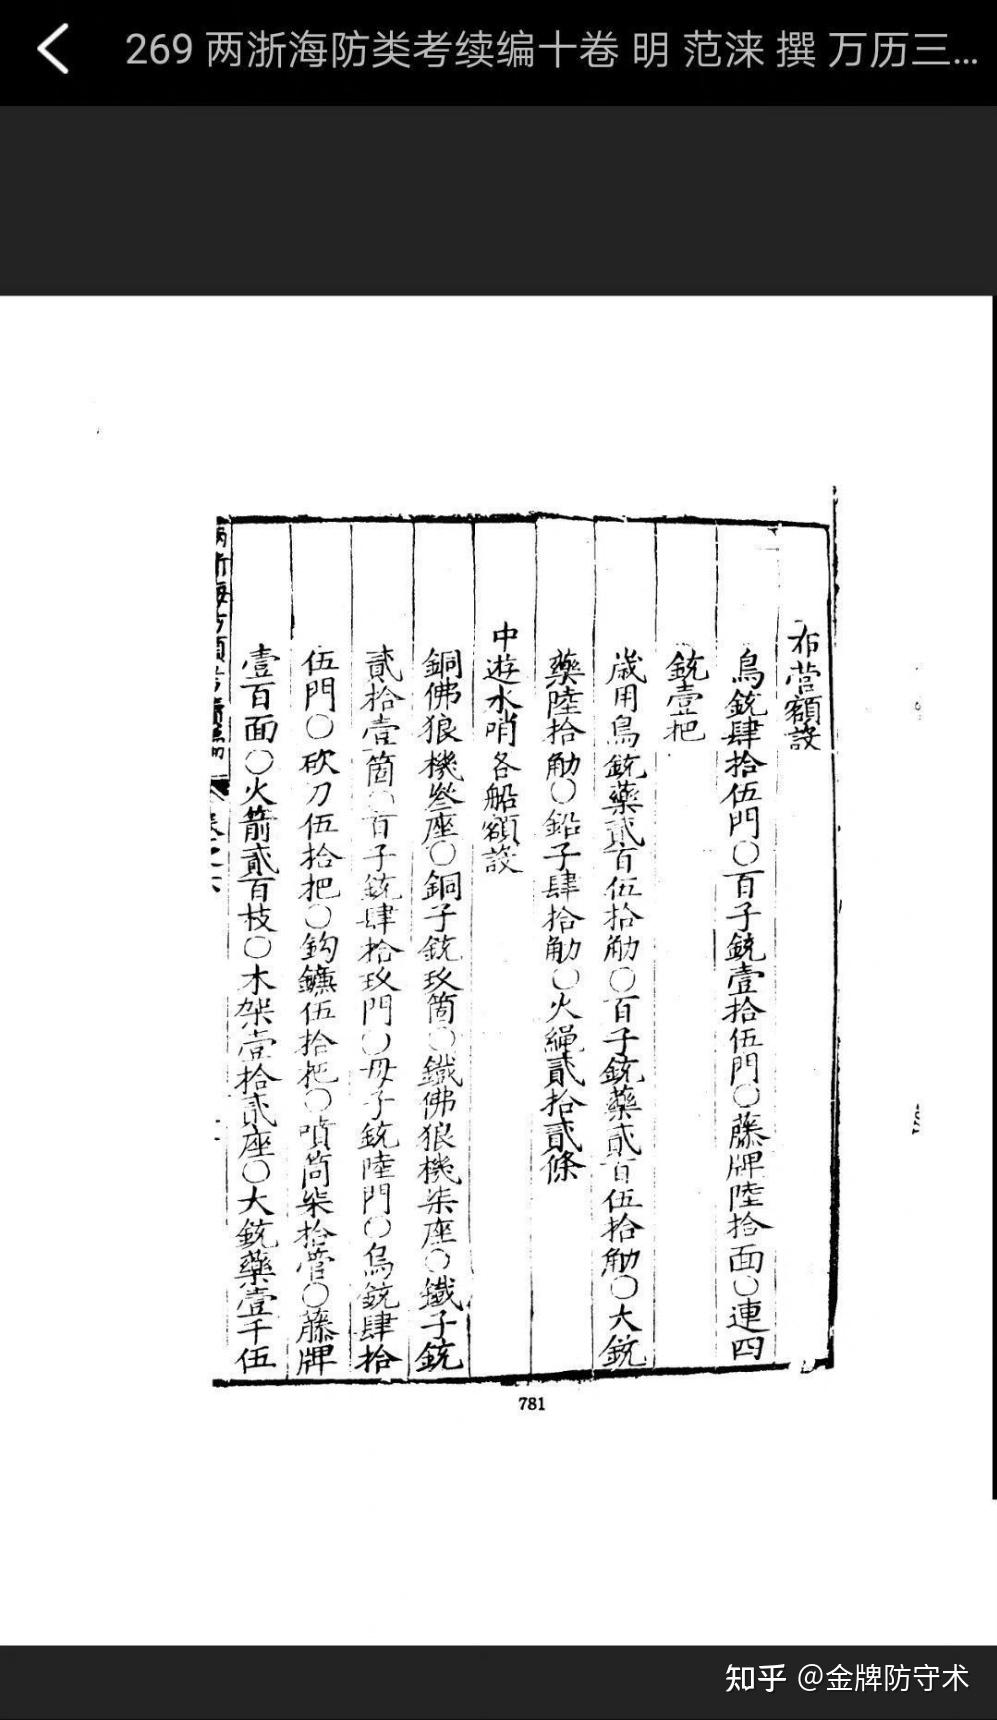 269 两浙海防类考续编十卷 明 范涞 撰 万历三...
布营額設
鳥銃肆拾伍門○百子銃壹拾伍門○藤牌陸拾面○連四
銃壹把
歲用鳥銃藥貳百伍拾觔○百子銃藥貳百伍拾觔○大銃
藥陸拾觔○鉛子肆拾觔○火繩貳拾貳條
中遊水哨各船額設
銅佛狼機叁座○銅子銃玖箇○鐵佛狼機柒座○鐵子銃
貳拾壹箇○百子銃肆拾玖門○母子銃陸門○鳥銃肆拾
伍門○砍刀伍拾把○鈎鐮伍拾把○噴筒柒拾管○藤牌
壹百面○火箭貳百枝○木架壹拾貳座○大銃藥壹千伍
781
知乎 @金牌防守术